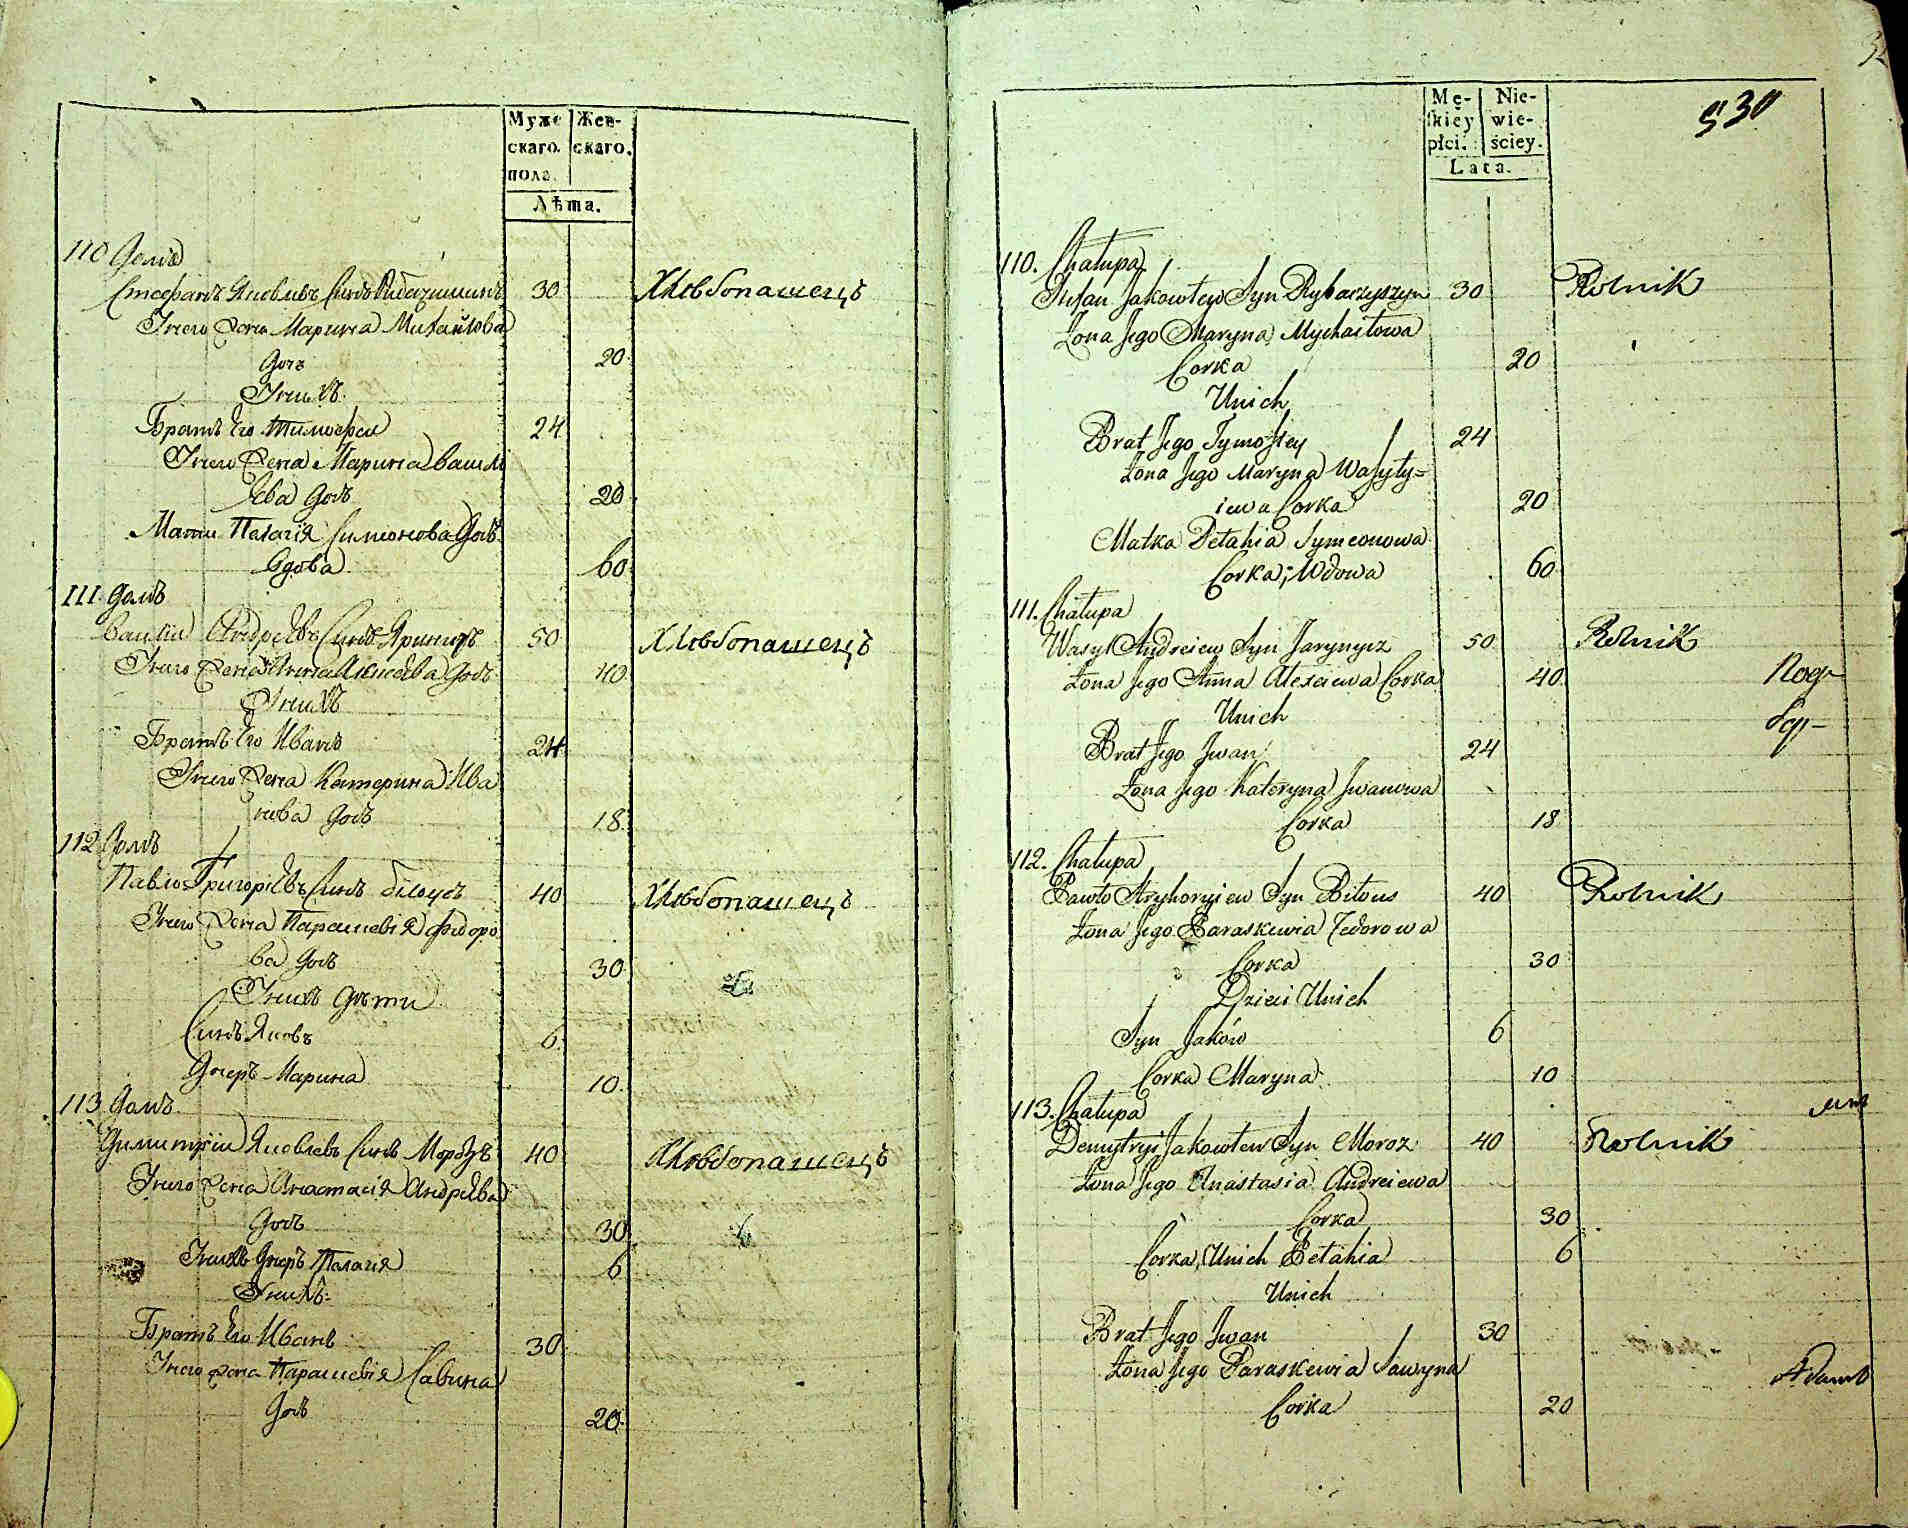 Муже
скаго
пола.
Жен-
скаго.
Лѣта.
110 Домъ
Стефанъ Яковлѣвъ Синъ Рибачишинъ 30 Хлѣбопашецъ
У него Жена Марина Михайлова
Дочъ 20
У нихъ
Братъ Его Тимофей 24
У него Жена Марина Васил
іева Дочъ 20
Мати Палагія Симионова Дочъ
Вдова 60
111 Домъ
Василій Андреевъ Синъ Яриничъ 50 Хлѣбопашецъ
У него Жена Анна Алексеева Дочъ 40
У нихъ
Братъ Его Иванъ 24
У него Жена Катерина Ива
нова Дочъ 18
112 Домъ
Павло Григоріевъ Синъ Білоусъ 40 Хлѣбопашецъ
У него Жена Параскевія Федоро
ва Дочъ 30
У нихъ Дѣти
Синъ Яковъ 6
Дочеръ Марина 10
113 Домъ
Димитрій Яковлевъ Синъ Морозъ 40 Хлѣбопашецъ
У него Жена Анастасія Андреева
Дочъ 30
У нихъ Дочеръ Палагія 6
У нихъ
Братъ Его Иванъ 30
У него Жена Параскевія Савина
Дочъ 20
530
Mę-
skiey
płci.
Nie-
wie-
ściey.
Lata.
110. Chałupa
Stefan Jakowlew Syn Rybaczyszyn 30 Rolnik
Żona Jego Maryna Mychaiłowa
Corka 20
Unich
Brat Jego Tymofiey 24
Żona Jego Maryna Wasyly=
iewa Corka 20
Matka Pelahia Symeonowa
Corka; Wdowa 60
111. Chałupa
Wasyl Andreiew Syn Jarynycz 50 Rolnik
Żona Jego Anna Alexiewa Corka 40
Unich
Brat Jego Jwan 24
Żona Jego Kateryna Jwanowa
Corka 18
112. Chałupa
Pawło Hryhoryiew Syn Biłous 40 Rolnik
Żona Jego Paraskewia Fedorowa
Corka 30
Dzieci Unich
Syn Jaków 6
Corka Maryna 10
113. Chałupa
Demytryi Jakowlew Syn Moroz 40 Rolnik
Żona Jego Anastasia Andreiewa
Corka 30
Corka Unich Pelahia 6
Unich
Brat Jego Jwan 30
Żona Jego Paraskewia Sawyna
Corka 20